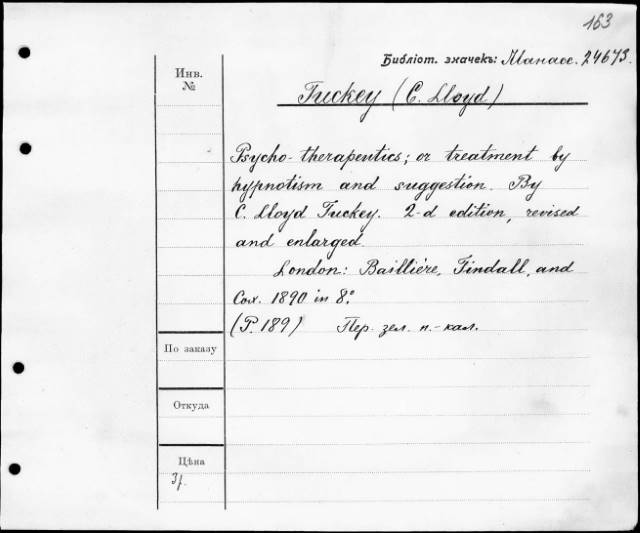 163
Библіот. значекъ: Манасе. 24673.
Инв.
№
Tuckey (C. Lloyd)
Psycho-therapeutics; or treatment by
hypnotism and suggestion. By
C. Lloyd Tuckey. 2-d edition, revised
and enlarged.
London: Baillière, Tindall, and
Cox. 1890 in 8.°
(P. 189) Пер. зел. п.-кал.
По заказу
Откуда
Цѣна
3р.